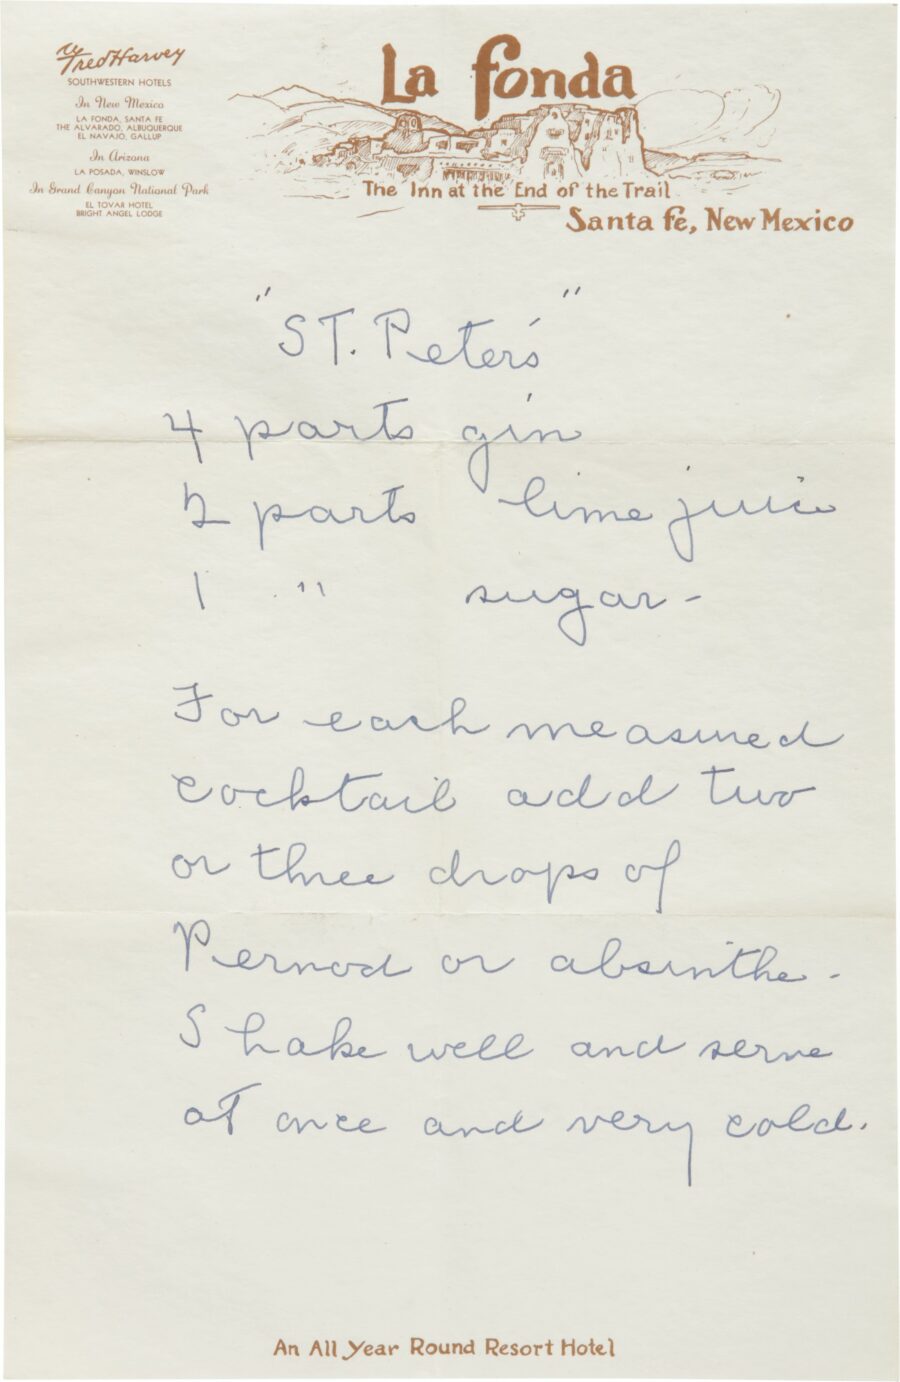 Fred Harvey
SOUTHWESTERN HOTELS
In New Mexico
LA FONDA, SANTA FE
THE ALVARADO, ALBUQUERQUE
EL NAVAJO, GALLUP
In Arizona
LA POSADA, WINSLOW
In Grand Canyon National Park
EL TOVAR HOTEL
BRIGHT ANGEL LODGE
La fonda
The Inn at the End of the Trail
Santa fé, New Mexico
"ST. Peter's"
4 parts gin
2 parts lime juice
1 " sugar -
For each measured
cocktail add two
or three drops of
Pernod or absinthe -
Shake well and serve
at once and very cold.
An All Year Round Resort Hotel